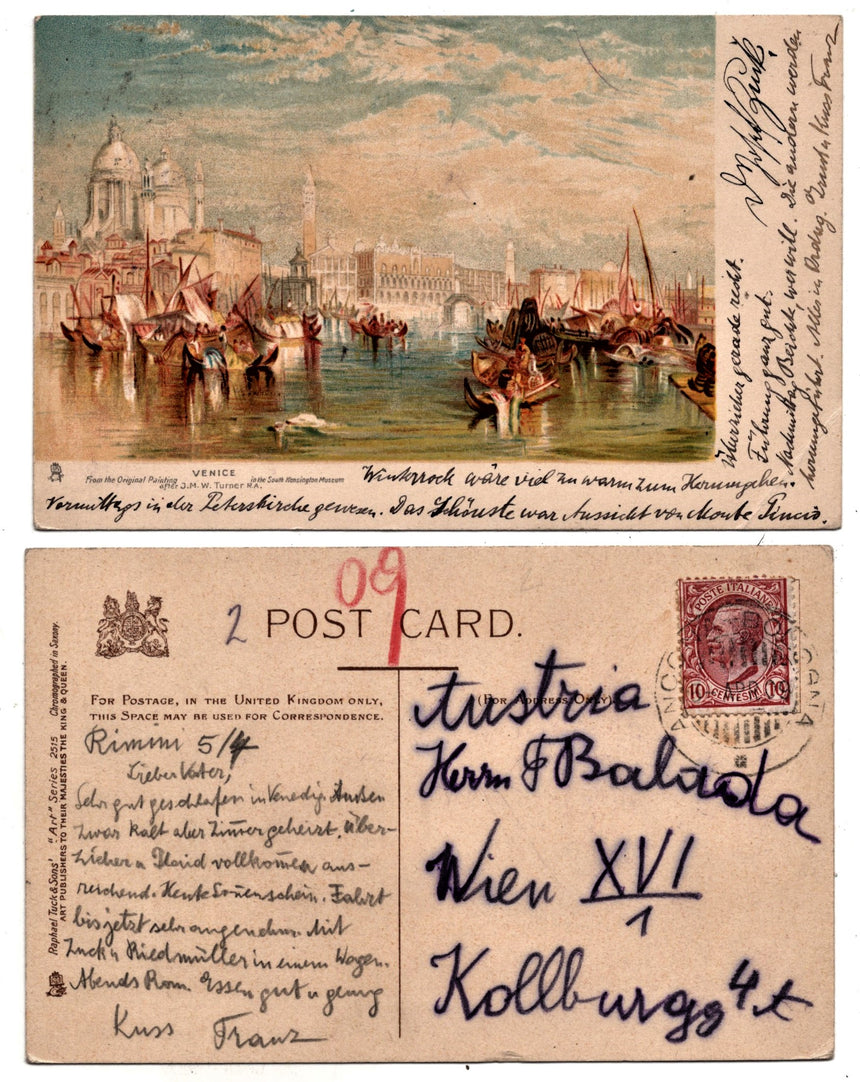 VENICE
From the Original Painting in the South Kensington Museum
after J.M.W. Turner R.A.
Winterrock wäre viel zu warm zum Herumgehen.
Vormittags in der Peterskirche gewesen. Das Schönste war Aussicht von Monte Pincio.
Überzieher gerade recht.
Führung ganz gut.
Nachmittag Beichte, wer will. Die andern werden
herumgeführt. Alles in Ordng. Gruss u Kuss Franz
09
2 POST CARD.
FOR POSTAGE, IN THE UNITED KINGDOM ONLY,
THIS SPACE MAY BE USED FOR CORRESPONDENCE.
(FOR ADDRESS ONLY)
POSTE ITALIANE
10 CENTESIMI 10
ANCONA
Rimini 5/4
Lieber Vater,
Sehr gut geschlafen in Venedig. Aussen
zwar kalt aber Zimmer geheizt. Über-
zieher u Plaid vollkommen aus-
reichend. Heute Sonnenschein. Fahrt
bis jetzt sehr angenehm. Mit
Zuck u Riedmüller in einem Wagen.
Abends Rom. Essen gut u genug
Kuss Franz
Austria
Herrn F Balada
Wien XVI
1
Kollburgg 4
Raphael Tuck & Sons' "Art" Series 2515 Chromographed in Saxony.
ART PUBLISHERS TO THEIR MAJESTIES THE KING & QUEEN.